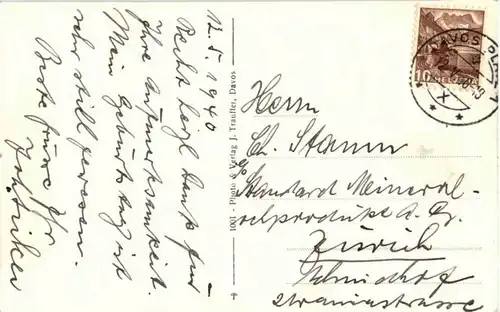 12.5.1940
Recht herzl Dank für
Ihre Aufmerksamkeit.
Mein Geburtstag ist
sehr still gewesen.
Beste Grüsse Ihr
1001 - Photo & Verlag J. Trauffer, Davos
DAVOS-PLATZ
10
HELVETIA
Herrn
Ch. Stamm
c/o
Standard Mineral-
oelprodukte A.G.
Zürich
Schmidhof
Uraniastrasse